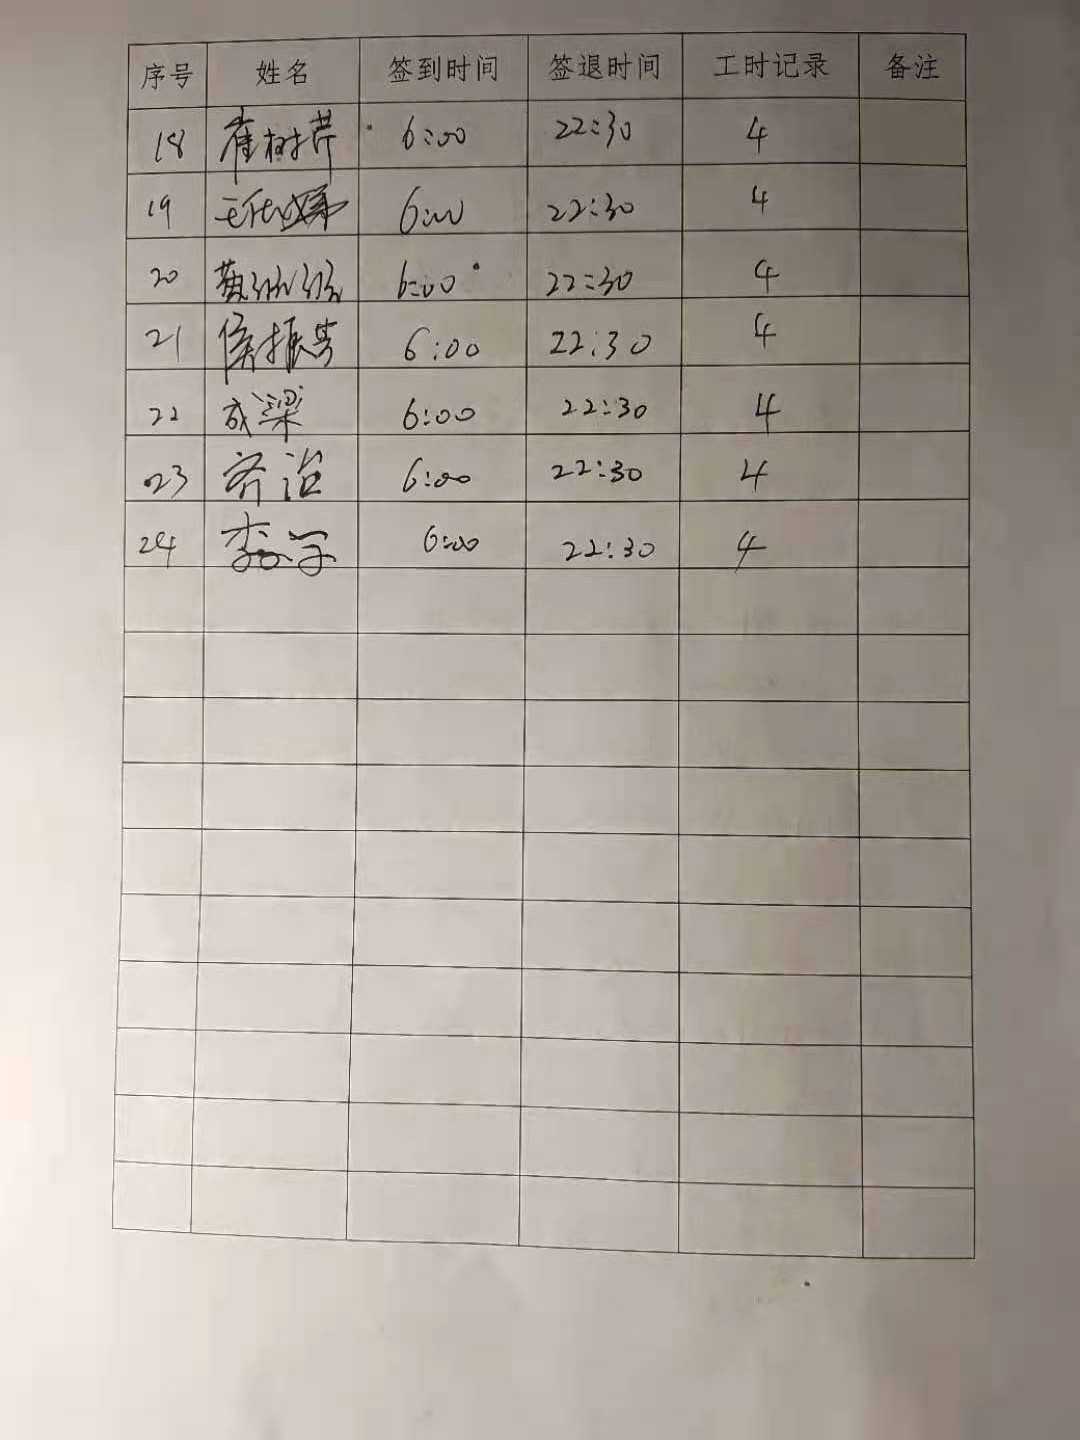 序号 姓名 签到时间 签退时间 工时记录 备注
18 崔树芹 6:00 22:30 4
19 6:00 22:30 4
20 6:00 22:30 4
21 侯振 6:00 22:30 4
22 成梁 6:00 22:30 4
23 齐治 6:00 22:30 4
24 李 6:00 22:30 4